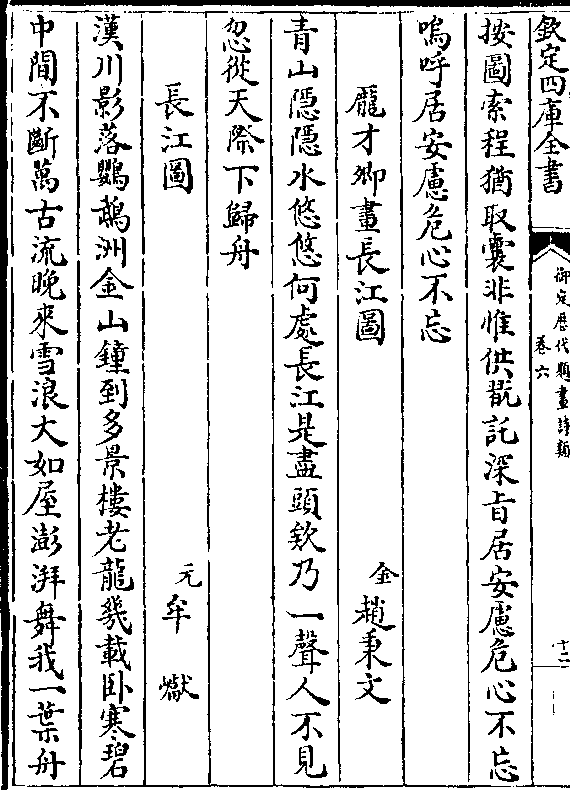 欽定四庫全書
御定歴代題畫詩類
卷六
十二
按圖索程猶取囊非惟供翫託深旨居安慮危心不忘
嗚呼居安慮危心不忘
龎才卿畫長江圖
金 趙秉文
青山隠隠水悠悠何處長江是盡頭欸乃一聲人不見
忽從天際下歸舟
長江圖
元 牟 巘
漢川影落鸚鵡洲金山鐘到多景樓老龍幾載卧寒碧
中間不斷萬古流晚來雪浪大如屋澎湃舞我一葉舟